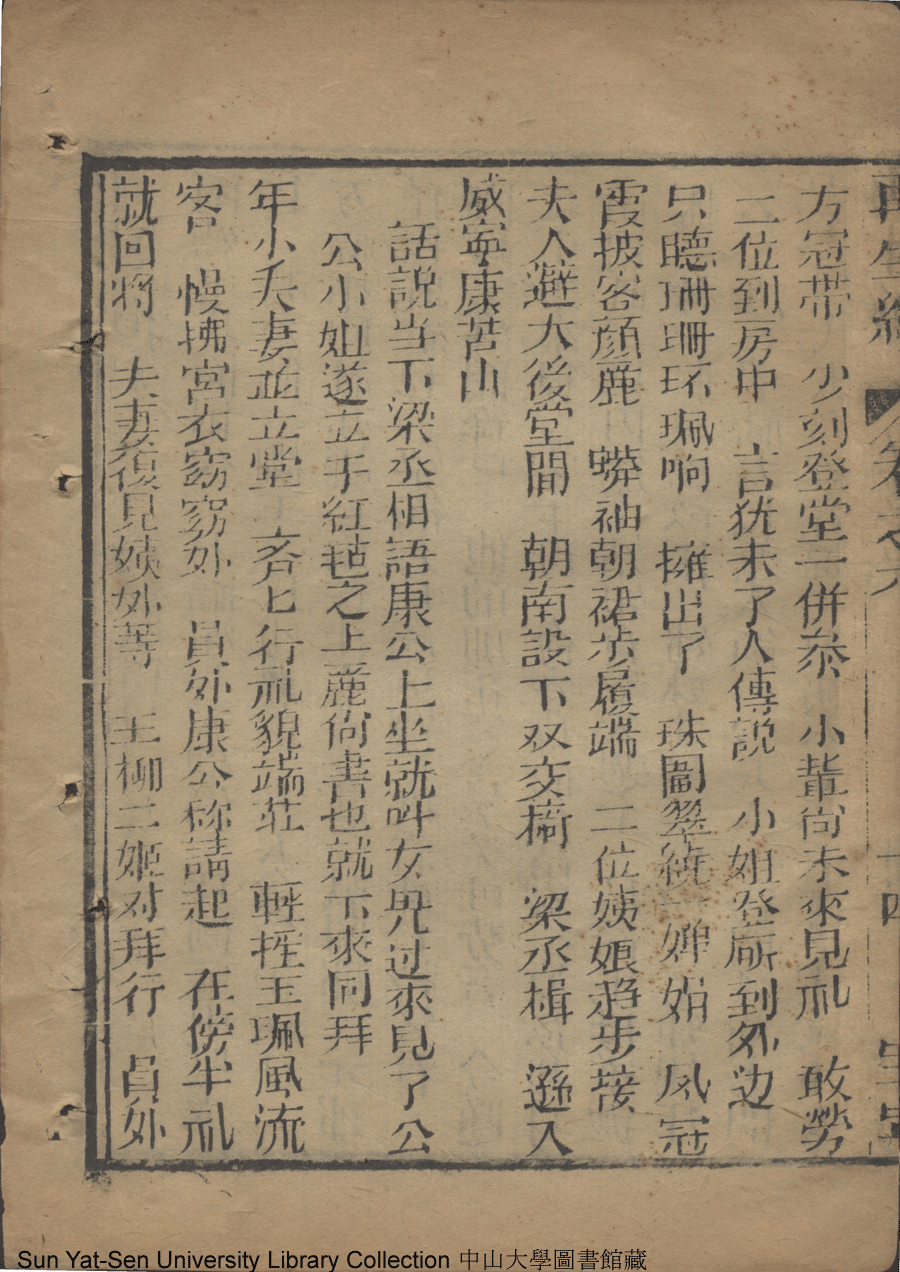 再生緣 卷之六 十四 寧寧
方冠帶 少刻登堂一併恭 小輩尙未來見礼 敢勞
二位到房中 言犹未了人傳説 小姐登𠩄到外边
只聽珊珊环珮响 擁出了 珠圍翠繞一婵娟 凤冠
霞披客顔麗 蟒袖朝裙步履端 二位姨娘趋步接
夫人避大後堂間 朝南設下双交椅 梁丞楫 遜入
威寧康苦山
話説当下梁丞相語康公上坐就叫女児过來見了公
公小姐遂立于紅毡之上麗尙書也就下來同拜
年小夫妻並立堂 斉匕行礼貌端莊 輕挳玉珮風流
客 慢拂宮衣窈窈外 員外康公称請起 在傍半礼
就回將 夫妻復見姨外等 王柳二姬对拜行 員外
Sun Yat-Sen University Library Collection 中山大學圖書館藏